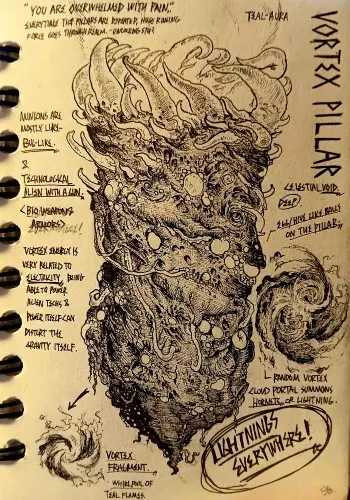 "YOU ARE OVERWHELMED WITH PAIN."
EVERYTIME THE PILLARS ARE DEFEATED, HUGE
FORCE GOES THROUGH REALM.
TEAL-AURA
VORTEX PILLAR
MINIONS ARE
MOSTLY LIKE
BUG-LIKE.
&
TECHNOLOGICAL
ALIEN WITH A GUN.
<BIO/WEAPONS
ARMORS>
VORTEX ENERGY IS
VERY RELATED TO
ELECTRICITY, BEING
ABLE TO POWER
ALIEN TECHS &
POWER ITSELF CAN
DISTORT THE
GRAVITY ITSELF.
CELESTIAL VOID.
DEEP
EGG/HIVE LIKE BALLS
ON THE PILLAR.
RANDOM VORTEX
CLOUD PORTAL SUMMONS
HORNETS, OR LIGHTNING.
LIGHTNINGS
EVERYWHERE!
VORTEX
FRAGMENT.
WHIRLPOOL OF
TEAL FLAMES.